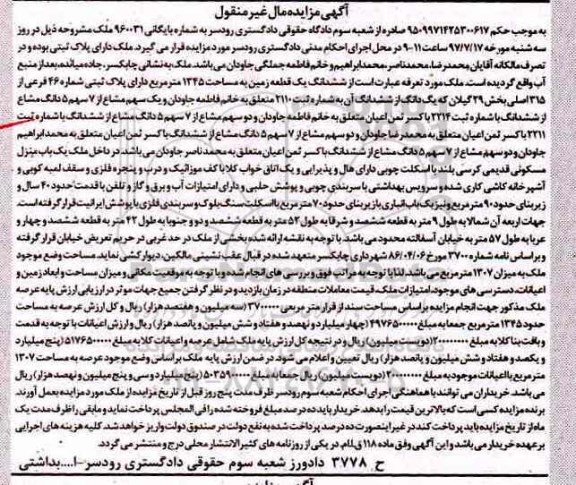 آگهی مزایده مال غیر منقول
به موجب حکم ۹۵۰۹۹۷۱۴۲۵۳۰۰۶۱۷ صادره از شعبه سوم دادگاه حقوقی دادگستری رودسر به شماره بایگانی ۹۶۰۰۳۱ ملک مشروحه ذیل در روز
سه شنبه مورخه ۹۷/۷/۱۷ ساعت ۱۱-۹ در محل اجرای احکام مدنی دادگستری رودسر مورد مزایده قرار می گیرد. ملک دارای پلاک ثبتی بوده و در
تصرف مالکانه آقایان محمدرضا، محمدناصر، محمد ابراهیم و خانم فاطمه جملگی جاودان می باشد. ملک به نشانی چابکسر، جاده میانده، بعد از منبع
آب واقع گردیده است. ملک مورد تعرفه عبارت است از ششدانگ یک قطعه زمین به مساحت ۱۳۴۵ مترمربع دارای پلاک ثبتی شماره ۴۶ فرعی از
۳۱۵ اصلی بخش ۲۹ گیلان که یک دانگ از ششدانگ آن به شماره ثبت ۲۱۱۰ متعلق به خانم فاطمه جاودان و یک سهم مشاع از ۷ سهم ۵ دانگ مشاع
از ششدانگ با شماره ثبت ۲۲۱۴ با کسر ثمن اعیان متعلق به خانم فاطمه جاودان و دو سهم مشاع از ۷ سهم ۵ دانگ مشاع از ششدانگ با شماره ثبت
۲۲۱۱ با کسر ثمن اعیان متعلق به محمدرضا جاودان و دو سهم مشاع از ۷ سهم ۵ دانگ مشاع از ششدانگ با کسر ثمن اعیان متعلق به محمد ابراهیم
جاودان و دو سهم مشاع از ۷ سهم ۵ دانگ مشاع از ششدانگ با کسر ثمن اعیان متعلق به محمد ناصر جاودان می باشد. در داخل ملک یک باب منزل
مسکونی قدیمی کرسی بلند با اسکلت چوبی دارای هال و پذیرایی و یک اتاق خواب کلا با کف موزائیک و درب و پنجره فلزی و سقف لمبه کوبی و
آشپرخانه کاشی کاری شده و سرویس بهداشتی با سربندی چوبی و پوشش حلبی و دارای امتیازات آب و برق و گاز و تلفن با قدمت حدود ۴۰ سال و
زیربنای حدود ۹۰ مترمربع و نیز یک باب انباری باز بربنای حدود ۷۰ مترمربع با اسکلت سنگ بلوک و سربندی فلزی با پوشش ایرانیت قرار گرفته است.
جهات اربعه آن شمالا به طول ۹ متر به قطعه ششصد و شرقا به طول ۵۲ متر به قطعه ششصد و دو و جنوبا به طول ۴۲ متر به قطعه ششصد و چهار و
غربا به طول ۵۷ متر به خیابان آسفالته محدود می باشد. با توجه به نقشه ارائه شده بخشی از ملک در حد غربی در حریم تعریض خیابان قرار گرفته
و براساس نامه شماره ۳۷۰۰ مورخ ۸۶/۰۴/۰۶ شهرداری چابکسر متعهد شده در قبال عقب نشینی مالکین، دیوارکشی نماید. مساحت وضع موجود
ملک به میزان ۱۳۰۷ مترمربع می باشد. لذا با توجه به مراتب فوق و بررسی های انجام شده و با توجه به موقعیت مکانی و میزان مساحت و ابعاد زمین و
اعیانات، دسترسی های موجود، امتیازات ملک، قیمت معاملات منطقه در زمان بازدید و در نظر گرفتن جمیع جهات موثر در ارزیابی ارزش پایه عرصه
ملک مذکور جهت انجام مزایده براساس مساحت سند از قرار متر مربعی ۳۷۰۰۰۰۰ (سه میلیون و هفتصد هزار) ریال و کل ارزش عرصه به مساحت
حدود ۱۳۴۵ مترمربع جمعا به مبلغ ۴۹۷۶۵۰۰۰۰۰ (چهار میلیارد و نهصد و هفتاد و شش میلیون و پانصد هزار) ریال و ارزش اعیانات با توجه به قدمت
و بافت بنا کلا به مبلغ ۲۰۰۰۰۰۰۰۰ (دویست میلیون) ریال و در نتیجه کل ارزش پایه ملک شامل عرصه و اعیانات کلا به مبلغ ۵۱۷۶۵۰۰۰۰۰ (پنج میلیارد
و یکصد و هفتاد و شش میلیون و پانصد هزار) ریال تعیین و اعلام می شود. در ضمن ارزش پایه ملک براساس وضع موجود عرصه به مساحت ۱۳۰۷
مترمربع با اعیانات موجود به مبلغ ۲۰۰۰۰۰۰۰۰ (دویست میلیون) ریال جمعا به مبلغ ۵۰۳۵۹۰۰۰۰۰ (پنج میلیارد و سی و پنج میلیون و نهصد هزار) ریال
می باشد. خریداران می توانند با هماهنگی اجرای احکام شعبه سوم رودسر ظرف مدت پنج روز قبل از تاریخ مزایده از ملک مورد مزایده بعمل آورند.
برنده مزایده کسی است که بالاترین قیمت را بدهد. خریدار باید ده درصد مبلغ فروخته شده را فی المجلس پرداخت نماید و مابقی را ظرف مدت یک
ماه از تاریخ مزایده باید پرداخت کند در غیر اینصورت ده درصد پرداخت شده به نفع دولت در صندوق دولت واریز خواهد شد. کلیه هزینه های اجرایی
بر عهده خریدار می باشد و این آگهی وفق ماده ۱۱۸ ق.ا.م. در یکی از روزنامه های کثیر الانتشار محلی درج و منتشر می گردد.
ح ۳۷۷۸ دادورز شعبه سوم حقوقی دادگستری رودسر-ا....بداشتی